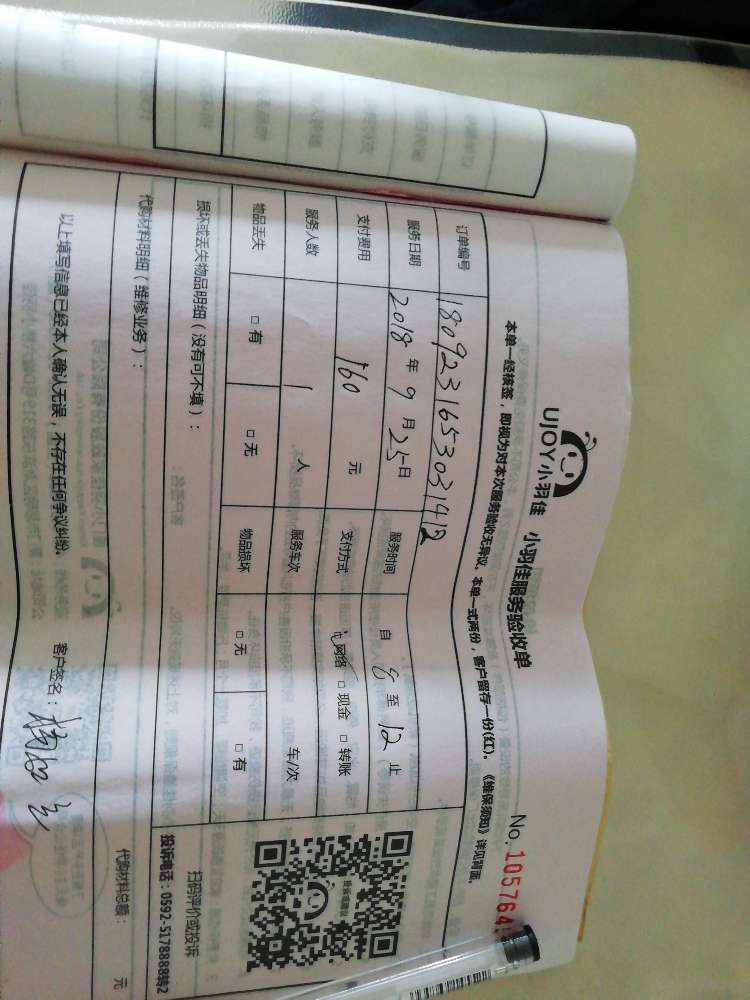 UJOY小羽佳 小羽佳服务验收单
No. 105764
本单一经核签，即视为对本次服务验收无异议。本单一式两份，客户留存一份(红)。《维保须知》详见背面。
订单编号 1809231653031412
服务日期 2018 年 9 月 25 日 服务时间 自 8 至 12 止
支付费用 160 元 支付方式 □网络 □现金 □转账
服务人数 1 人 服务车次 车/次
物品丢失 □有 □无 物品损坏 □无 □有
损坏或丢失物品明细（没有可不填）：
扫码评价或投诉
投诉电话：0592-5178888转2
代购材料明细（维修业务）： 代购材料总额： 元
以上填写信息已经本人确认无误，不存在任何争议纠纷。 客户签名：